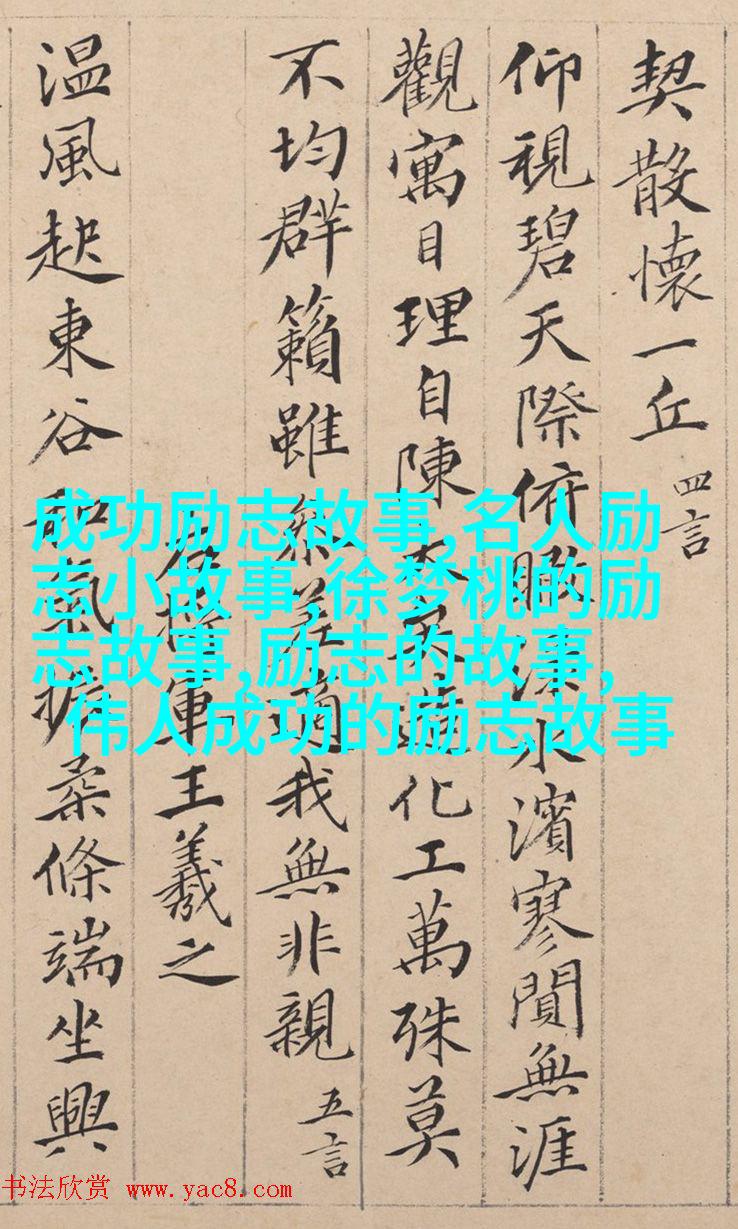 契散懷一丘 四言
仰視碧天際俯瞰淥水濱寥閴無涯
觀寓目理自陳大矣造化工萬殊莫
不均群籟雖參差適我無非親 五言
右將軍王羲之
温風起東谷和氣振柔條端坐興
成功励志故事,名人励
志小故事,徐梦桃的励
志故事,励志的故事,
伟人成功的励志故事
书法欣赏 www.yac8.com